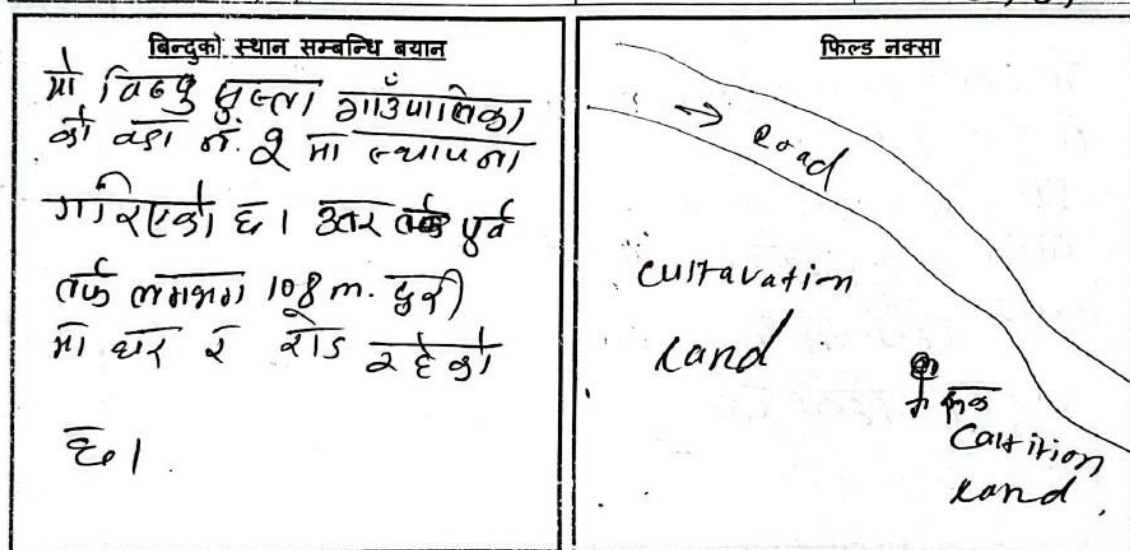 बिन्दुको स्थान सम्बन्धि बयान
यो विन्दु सुस्ता गाउँपालिका
को वडा नं. 2 मा स्थापना
गरिएको छ। उतर पुर्व
तर्फ लगभग 108 m. दुरी
मा घर र रोड रहेको
छ।
फिल्ड नक्सा
→ Road
Cultavation
Land
Caltition
Land